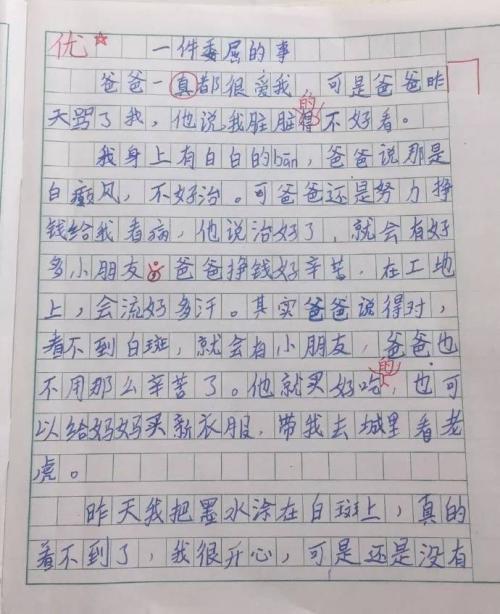 优
一件委屈的事
爸爸一真都很爱我，可是爸爸昨
天骂了我，他说我脏脏的不好看。
我身上有白白的bān，爸爸说那是
白癜风，不好治。可爸爸还是努力挣
钱给我看病，他说治好了，就会有好
多小朋友。爸爸挣钱好辛苦，在工地
上，会流好多汗。其实爸爸说得对，
看不到白斑，就会有小朋友，爸爸也
不用那么辛苦了。他就买好吃的，也可
以给妈妈买新衣服，带我去城里看老
虎。
昨天我把墨水涂在白斑上，真的
看不到了，我很开心，可是还是没有